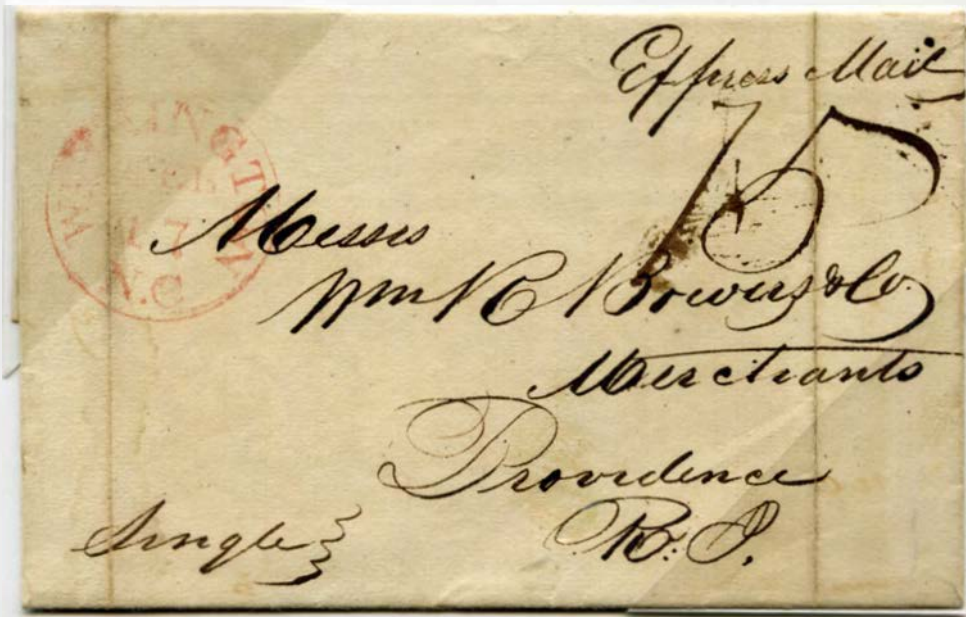 Express Mail
75
WILMINGTON
17
N.C
Messrs
Wm H C Bowers & Co.
Merchants
Providence
R: I.
Single